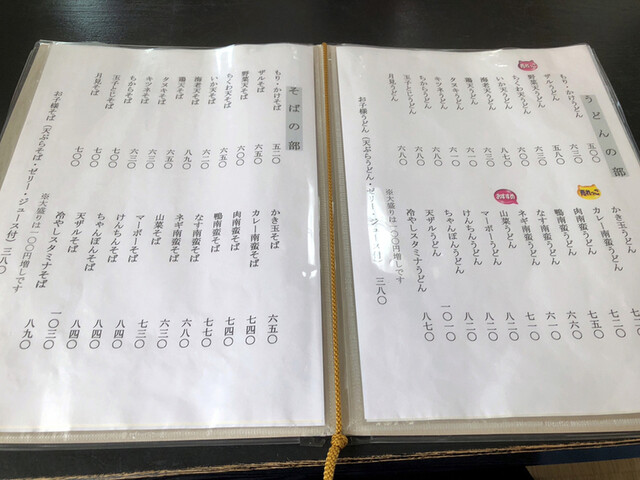 うどんの部
もり・かけうどん 五〇〇
ザルうどん 五三〇
野菜天うどん
ちくわ天うどん
いか天うどん
海老天うどん 八七〇
鶏天うどん 六三〇
タヌキうどん 六一〇
キツネうどん 六一〇
ちからうどん 六八〇
玉子とじうどん 六八〇
月見うどん 六八〇
お子様うどん(天ぷらうどん・ゼリー・ジュース付) 三八〇
かき玉うどん
カレー南蛮うどん
肉南蛮うどん 七二〇
鴨南蛮うどん 七五〇
なす南蛮うどん 六六〇
ネギ南蛮うどん 六一〇
おすすめ
山菜うどん 七一〇
マーボーうどん 八二〇
けんちんうどん 八二〇
ちゃんぽんうどん 八二〇
天ザルうどん 一〇一〇
冷やしスタミナうどん 八七〇
※大盛りは一〇〇円増しです
そばの部
もり・かけそば 五二〇
ザルそば
野菜天そば
ちくわ天そば
いか天そば 六二〇
海老天そば 八九〇
鶏天そば
タヌキそば 六三〇
キツネそば 六三〇
ちからそば 七〇〇
玉子とじそば 七〇〇
月見そば 七〇〇
お子様そば(天ぷらそば・ゼリー・ジュース付) 三八〇
かき玉そば 六五〇
カレー南蛮そば 七四〇
肉南蛮そば 七四〇
鴨南蛮そば 七七〇
なす南蛮そば 六八〇
ネギ南蛮そば 六三〇
山菜そば 七三〇
マーボーそば 八四〇
けんちんそば 八四〇
ちゃんぽんそば 八四〇
天ザルそば 一〇三〇
冷やしスタミナそば 八九〇
※大盛りは一〇〇円増しです